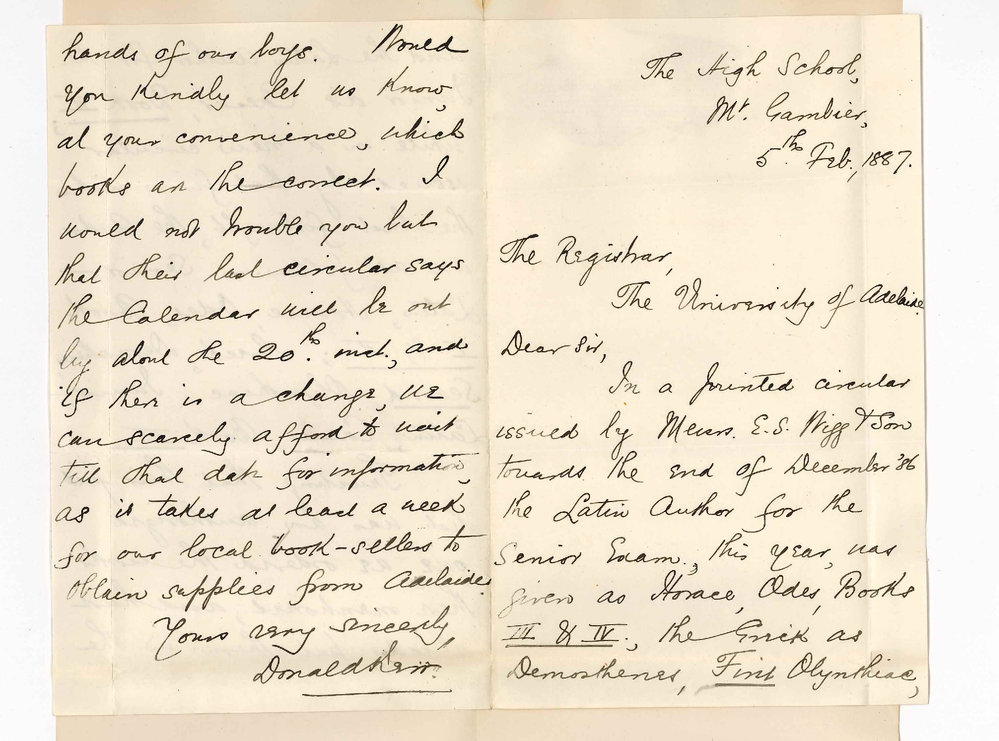 The High School,
Mt. Gambier,
5th. Feb., 1887.
The Registrar,
The University of Adelaide.
Dear Sir,
In a printed circular
issued by Messrs. E. S. Wigg & Son
towards the end of December '86
the Latin Author for the
Senior Exam., this year, was
given as Horace, Odes, Books
III & IV., the Greek as
Demosthenes, First Olynthiac,
hands of our boys. Would
you kindly let us know,
at your convenience, which
books are the correct. I
would not trouble you but
that their last circular says
the Calendar will be out
by about the 20th. inst., and
if there is a change, we
can scarcely afford to wait
till that date for information,
as it takes at least a week
for our local book-sellers to
obtain supplies from Adelaide.
Yours very sincerely,
Donald Kerr.